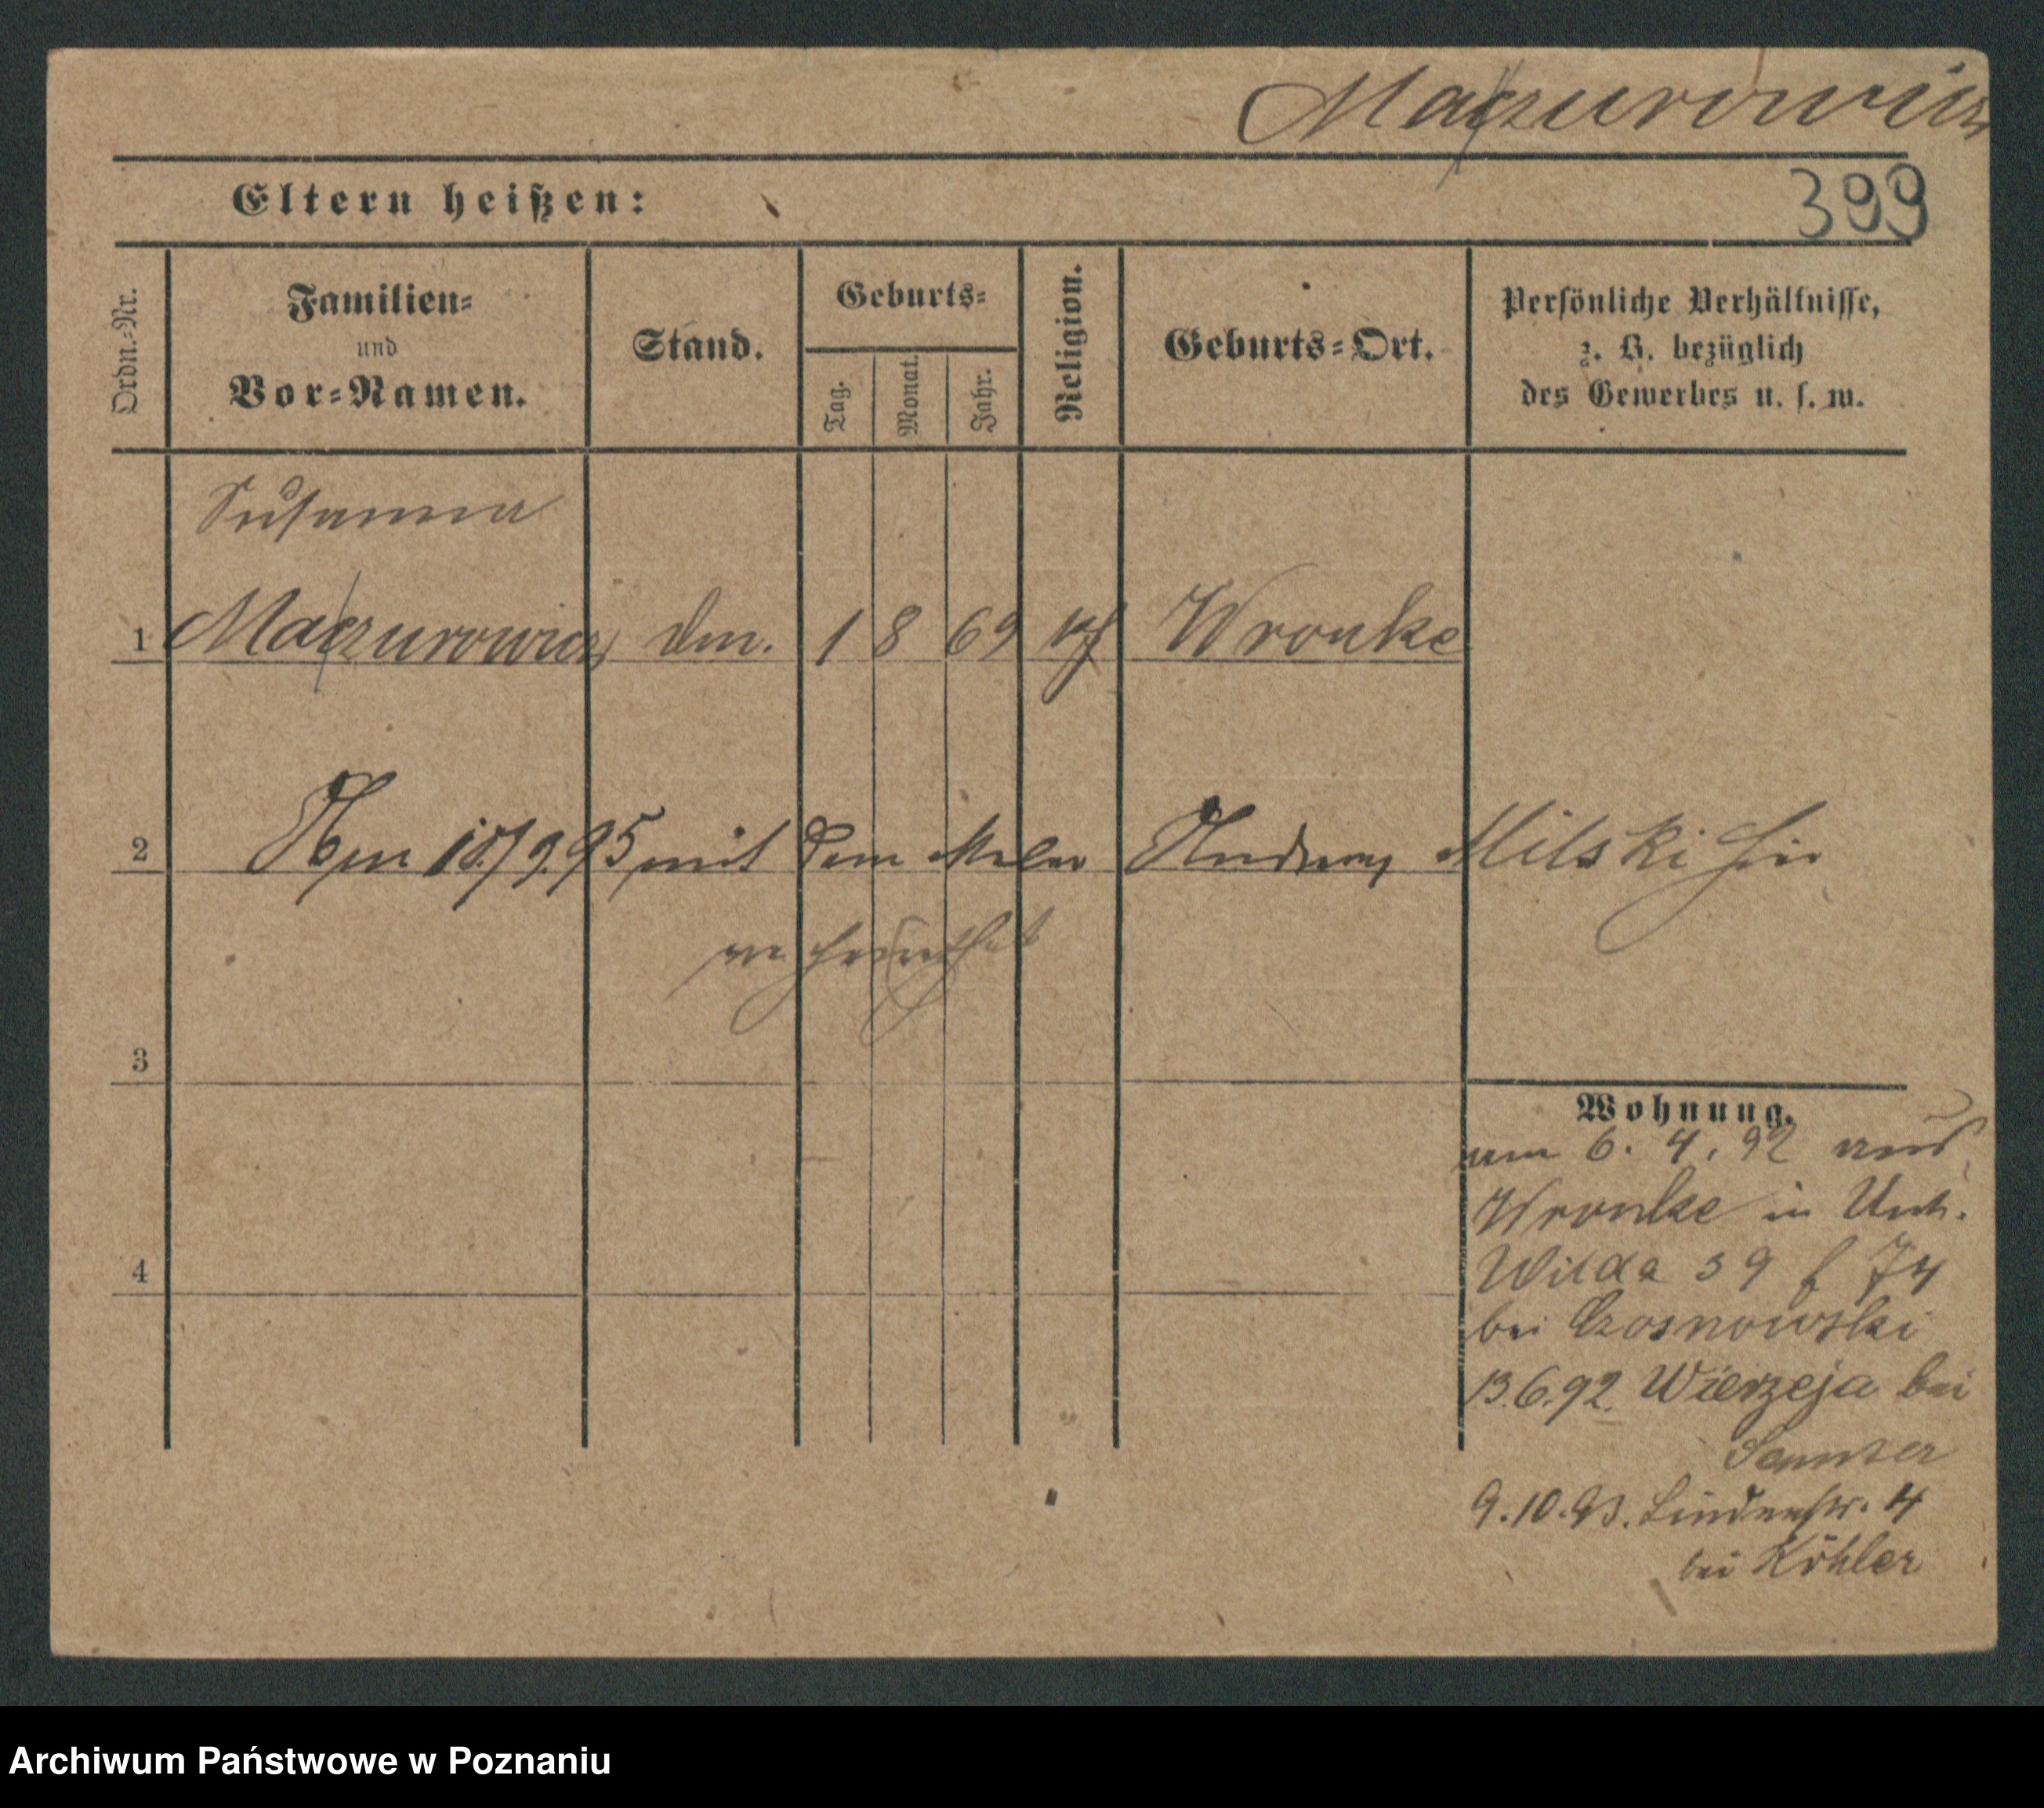 Maczurowicz
Eltern heißen:
399
Ordn.-Nr.
Familien-
und
Vor-Namen.
Stand.
Geburts-
Tag.
Monat.
Jahr.
Religion.
Geburts-Ort.
Persönliche Verhältnisse,
z. B. bezüglich
des Gewerbes u. s. w.
Susanna
1 Maczurowicz 1 8 69 kf Wronke
2 Am 18/9.95 mit dem Maler Andreas Milski hier
verheirathet
3
4
Wohnung.
am 6. 4. 92 aus
Wronke in Unt.
Wilda 39 f 74
bei Czosnowski
13.6.92. Wierzeja bei
Samter
9.10.93. Lindenstr. 4
bei Köhler
Archiwum Państwowe w Poznaniu